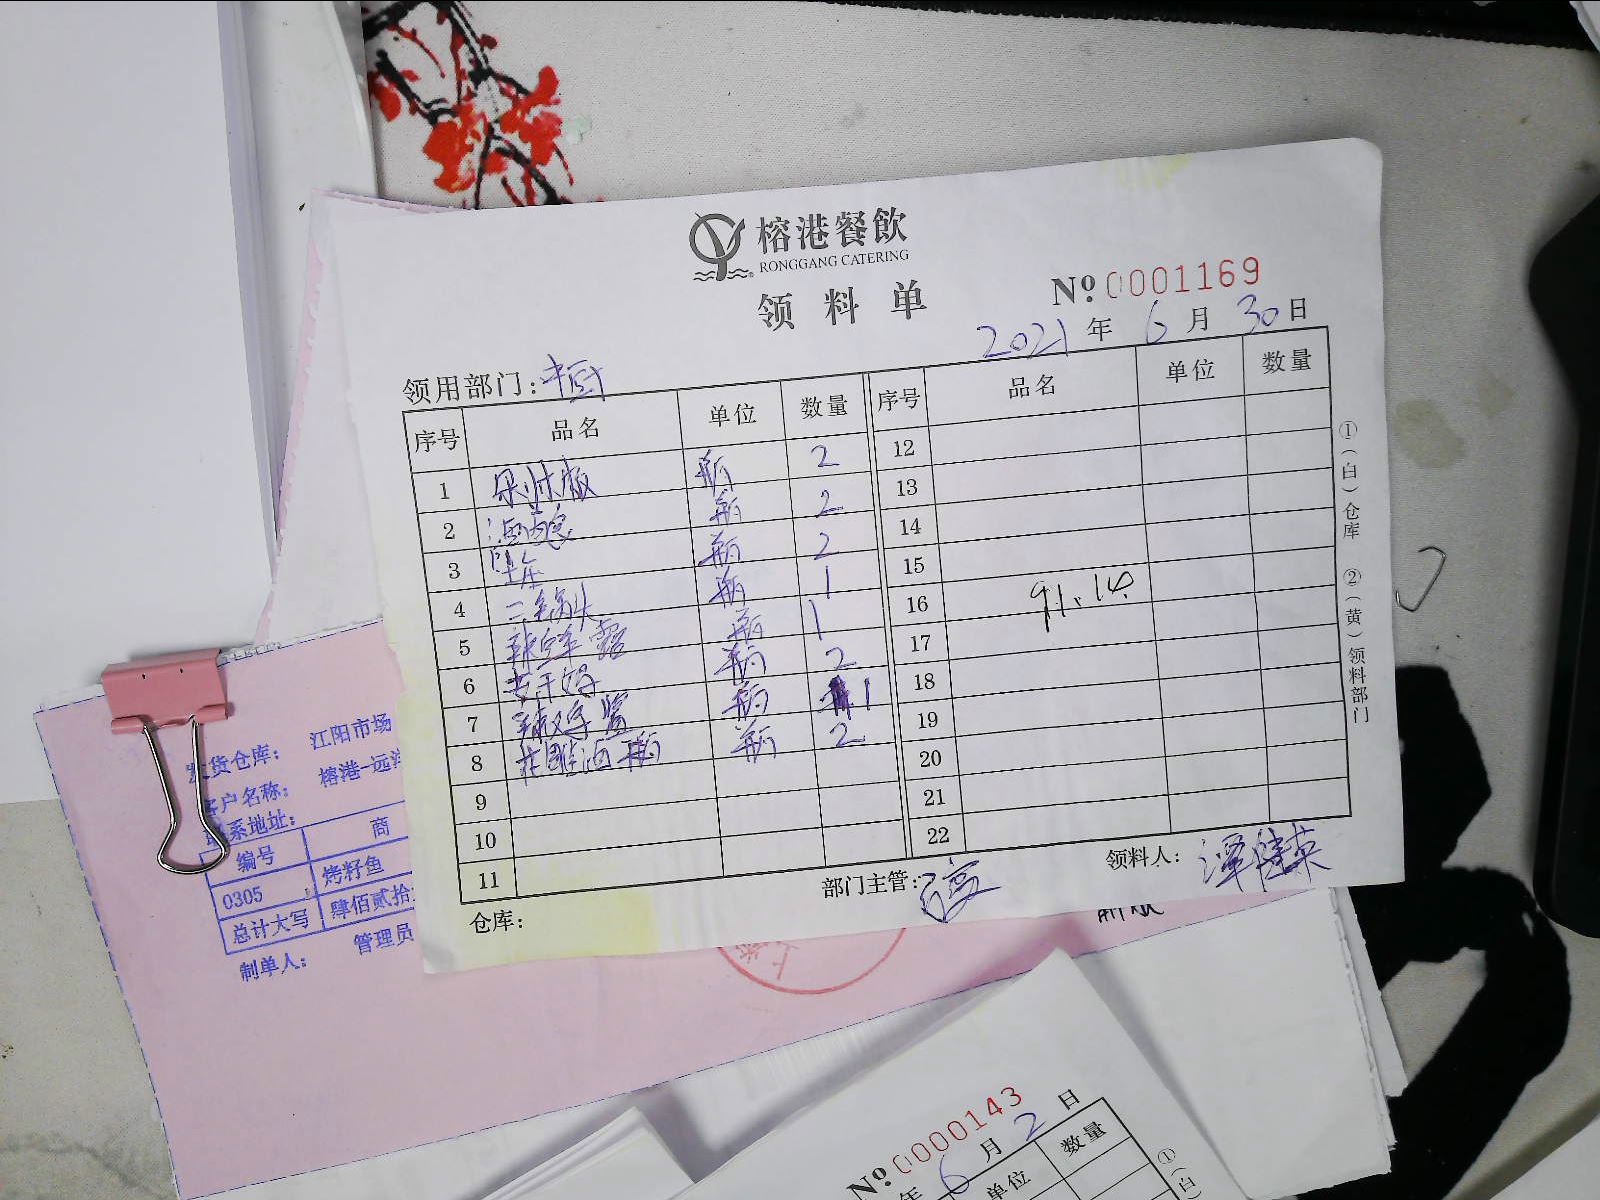 榕港餐飲
RONGGANG CATERING
领料单
№ 0001169
2021年6月30日
领用部门:中厨
序号 品名 单位 数量 序号 品名 单位 数量
1 瓶 2 12
2 瓶 2 13
3 瓶 2 14
4 二锅头 瓶 1 15
5 瓶 1 16 91.14
6 老干妈 瓶 2 17
7 瓶 1 18
8 花雕酒 瓶 瓶 2 19
9 20
10 21
11 22
仓库: 部门主管: 领料人:
①(白)仓库 ②(黄)领料部门
发货仓库: 江阳市场
客户名称: 榕港-远洋
联系地址:
编号 商
0305 烤籽鱼
总计大写 肆佰贰拾
制单人: 管理员
№ 0000143
年6月2日
单位 数量
①(白)